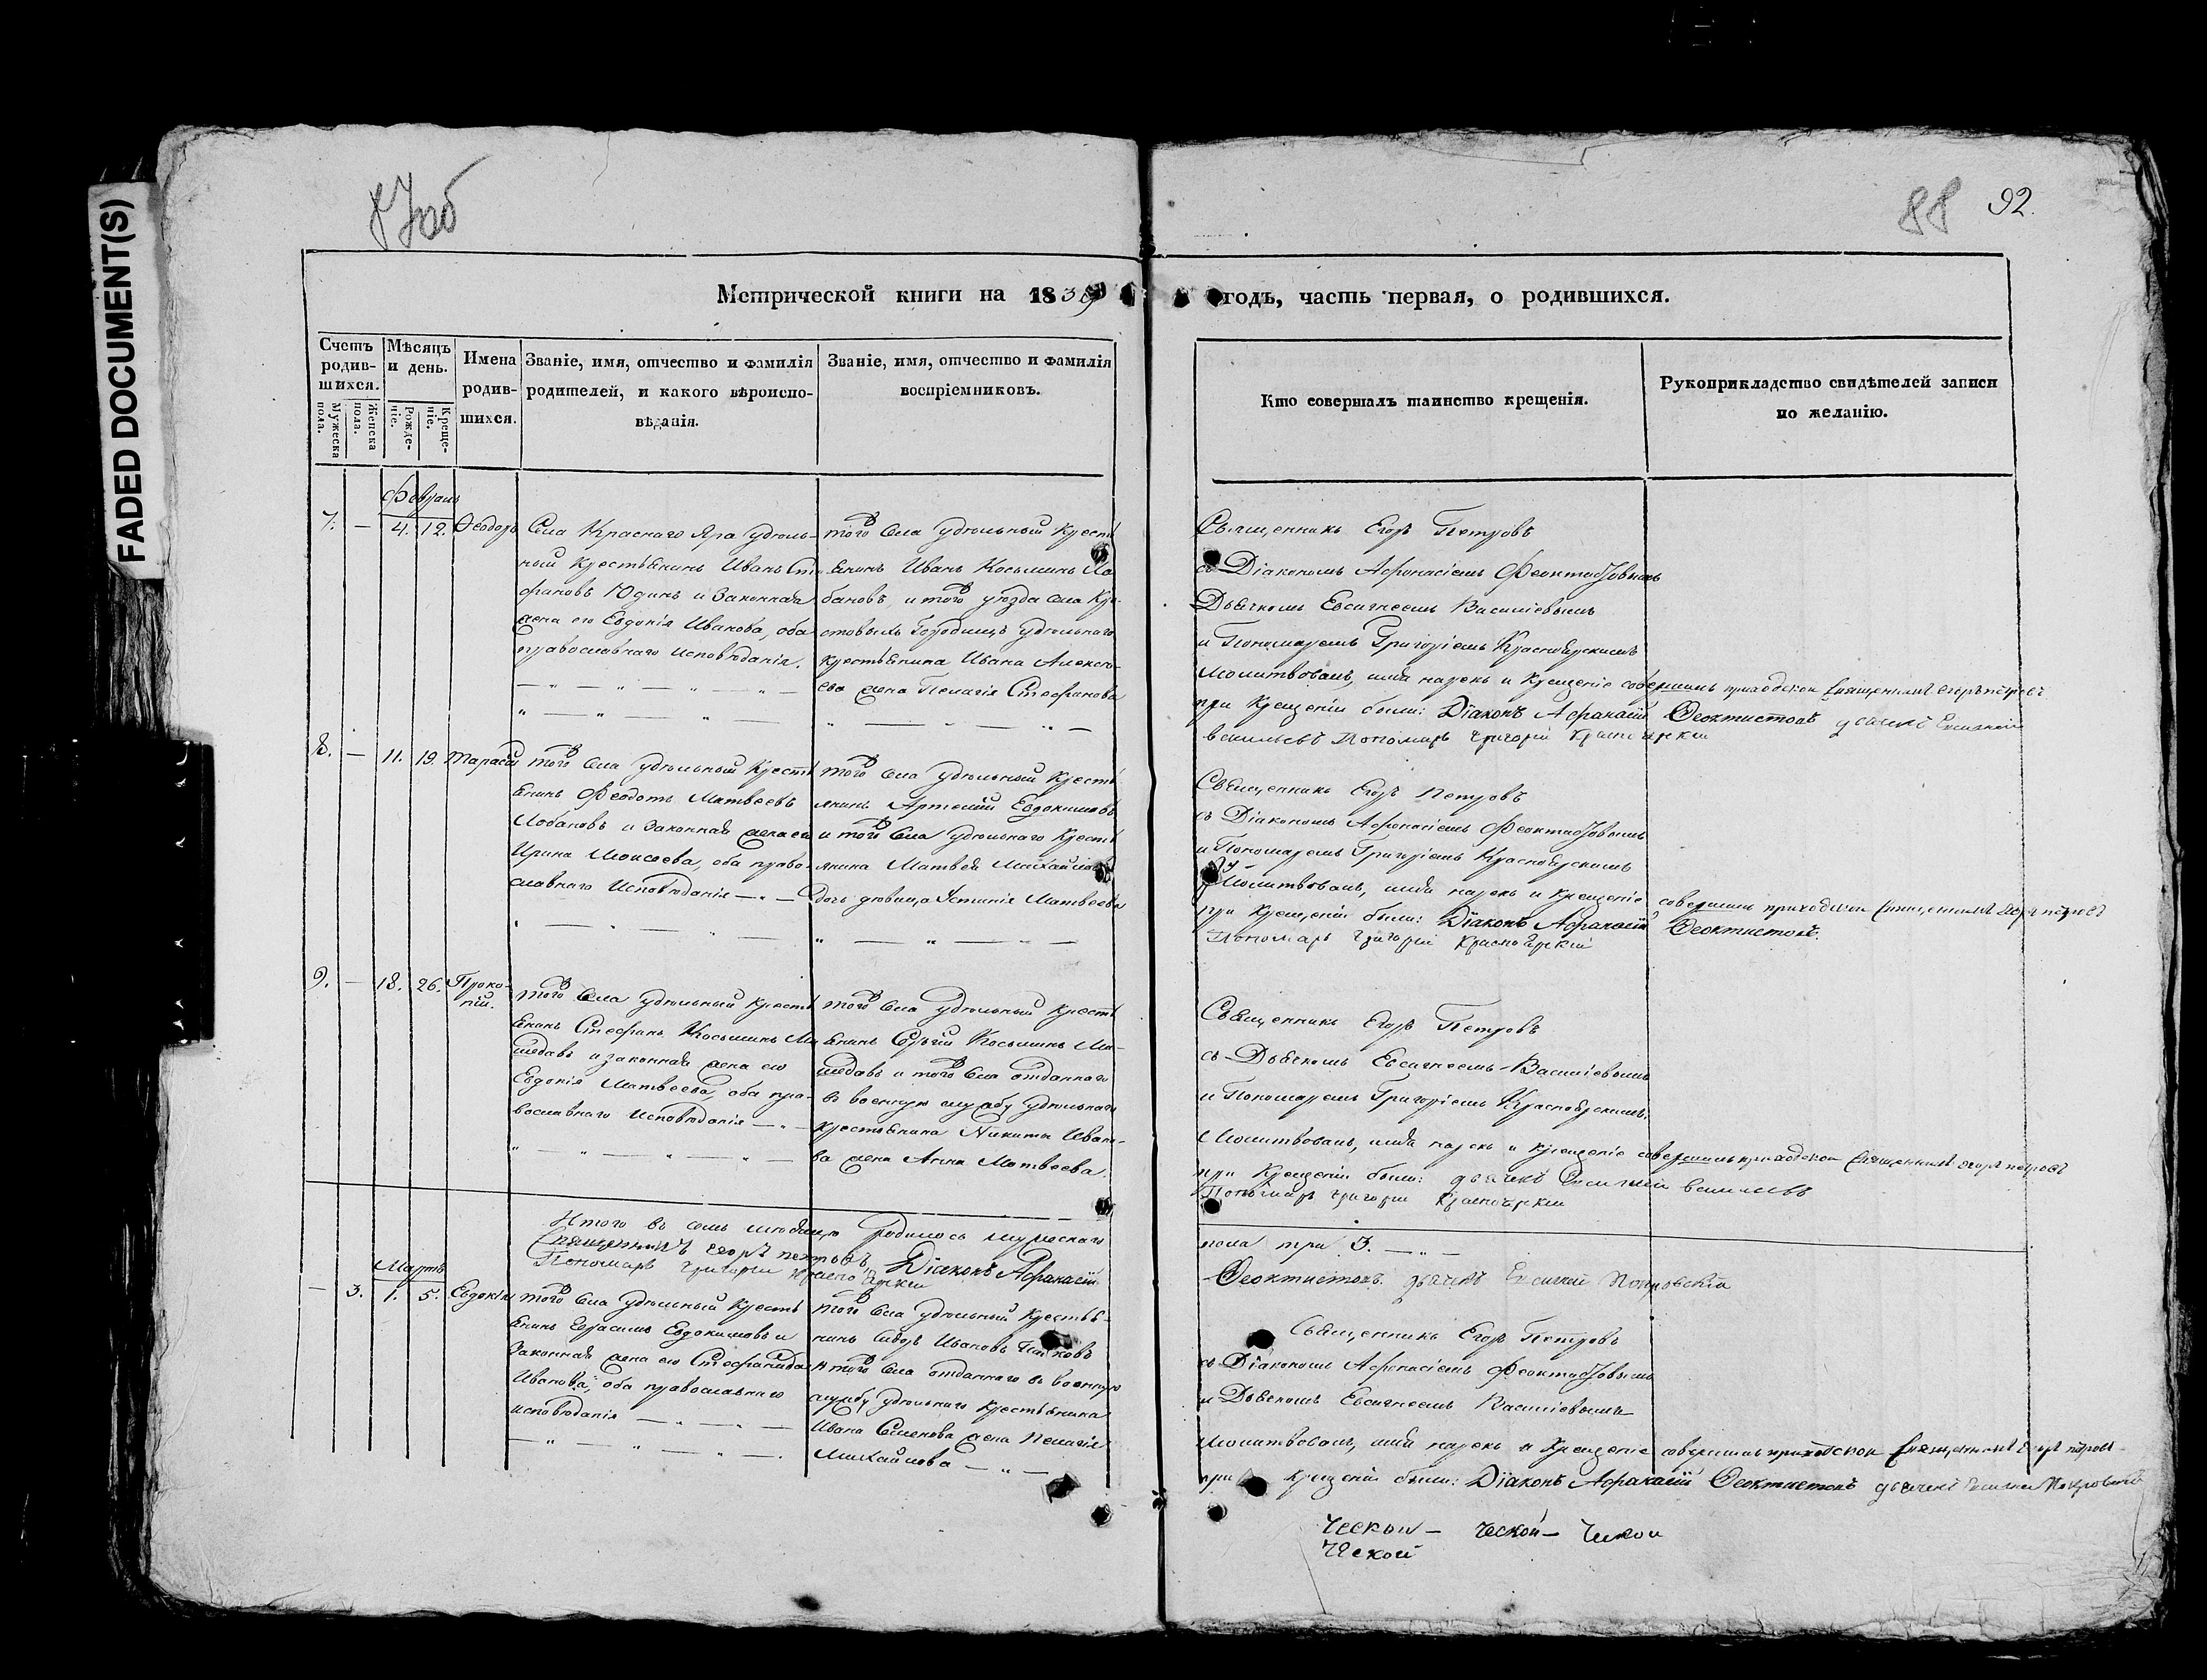 FADED DOCUMENT(S)
87об
88 92.
Метрической книги на 1839 годъ, часть первая, о родившихся.
Счетъ родив-шихся.
Мужеска пола.
Женска пола.
Мѣсяцъ и день.
Рожде-ніе.
Креще-ніе.
Имена родив-шихся.
Званіе, имя, отчество и фамилія
родителей, и какого вѣроиспо-
вѣданія.
Званіе, имя, отчество и фамилія
воспріемниковъ.
Кто совершалъ таинство крещенія.
Рукоприкладство свидѣтелей записи
по желанію.
Февраль
7. — 4. 12. Ѳеодоръ
Села Краснаго Яра удѣль-
ный крестьянинъ Иванъ Сте
фановъ Юдинъ и законная
жена его Евдокія Иванова, оба
православнаго исповѣданія.
того села удѣльный кресть
янинъ Иванъ Косьминъ Ло
бановъ, и того уѣзда села Кре-
стовыхъ Городищъ удѣльнаго
крестьянина Ивана Алексѣ-
ева жена Пелагія Стефанова
Священникъ Егоръ Петровъ
съ Діакономъ Афонасіемъ Феоктистовымъ
Дьячкомъ Евсигнеемъ Василіевымъ
и Пономаремъ Григоріемъ Красноярскимъ
Молитвовалъ, имя нарекъ и крещеніе совершилъ приходской священникъ егоръ петровъ
при крещеніи были: Діаконъ Афанасій Феоктистовъ дьячекъ Евсигней
васильевъ Пономарь григорій красноярскій
8. — 11. 19. Тарасій
того села удѣльный кресть
янинъ Феодотъ Матвеевъ
Лобановъ и законная жена его
Ирина Моисеева, оба право-
славнаго исповѣданія
того села удѣльный кресть
янинъ Артемій Евдокимовъ
и того села удѣльнаго кресть
янина Матвея Михайлова
дочь дѣвица Устинія Матвеева
Священникъ Егоръ Петровъ
съ Діакономъ Афонасіемъ Феоктистовымъ
и Пономаремъ Григоріемъ Красноярскимъ
Молитвовалъ, имя нарекъ и крещеніе совершилъ приходской священникъ егоръ петровъ
при крещеніи были: Діаконъ Афанасій Феоктистовъ.
Пономарь григорій красноярскій
9. — 18. 26. Проко-
пій.
того села удѣльный кресть
янинъ Стефанъ Косьминъ
и законная жена его
Евдокія Матвеева, оба пра-
вославнаго исповѣданія
того села удѣльный кресть
янинъ Сергій Косьминъ
и того села отданнаго
въ военную службу удѣльнаго
крестьянина Никиты Ивано-
ва жена Анна Матвеева.
Священникъ Егоръ Петровъ
съ Дьячкомъ Евсигнеемъ Василіевымъ
и Пономаремъ Григоріемъ Красноярскимъ.
Молитвовалъ, имя нарекъ и крещеніе совершилъ приходской священникъ егоръ петровъ
при крещеніи были: дьячекъ Евсигней васильевъ
Пономарь григорій красноярскій
Итого въ семъ мѣсяцѣ родилось мужескаго пола три 3.
священникъ егоръ петровъ, Діаконъ Афанасій Феоктистовъ. дьячекъ Евсигней Покровскій
Пономарь григорій красноярскій
Мартъ
— 3. 1. 5. Евдокія
того села удѣльный кресть
янинъ Герасимъ Евдокимовъ и
законная жена его Стефанида
Иванова, оба православнаго
исповѣданія
того села удѣльный крестья-
нинъ Сидоръ Ивановъ
и того села отданнаго въ военную
службу удѣльнаго крестьянина
Ивана Семенова жена Пелагія
Михайлова
Священникъ Егоръ Петровъ
съ Діакономъ Афонасіемъ Феоктистовымъ
и Дьячкомъ Евсигнеемъ Василіевымъ
Молитвовалъ, имя нарекъ и крещеніе совершилъ приходской священникъ егоръ петровъ
при крещеніи были: Діаконъ Афанасій Феоктистовъ дьячекъ Евсигней Покровскій
ческой — ческой — ческой
ческой